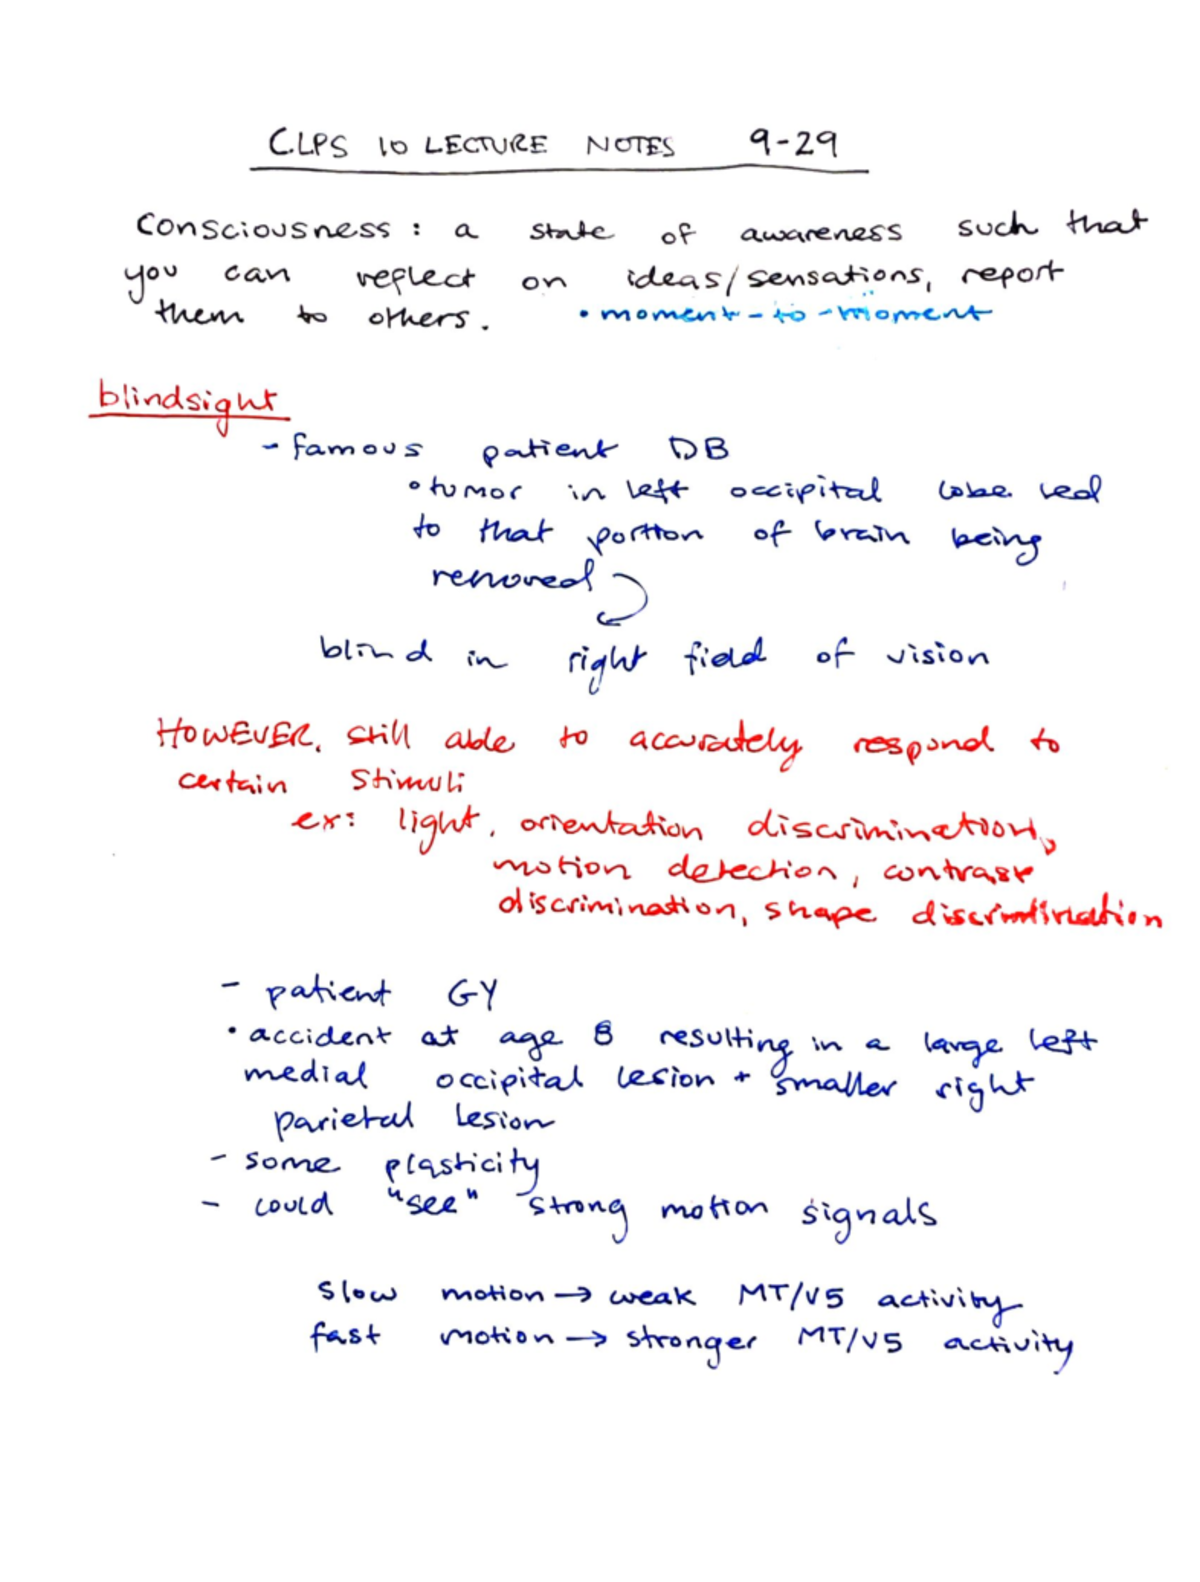 CLPS 10 LECTURE NOTES 9-29
Consciousness: a state of awareness such that
you can reflect on ideas/sensations, report
them to others. • moment-to-moment
blindsight
- famous patient DB
• tumor in left occipital lobe led
to that portion of brain being
removed
blind in right field of vision
HOWEVER, still able to accurately respond to
certain stimuli
ex: light, orientation discrimination,
motion detection, contrast
discrimination, shape discrimination
- patient GY
• accident at age 8 resulting in a large left
medial occipital lesion + smaller right
parietal lesion
- some plasticity
- could "see" strong motion signals
slow motion → weak MT/V5 activity
fast motion → stronger MT/V5 activity